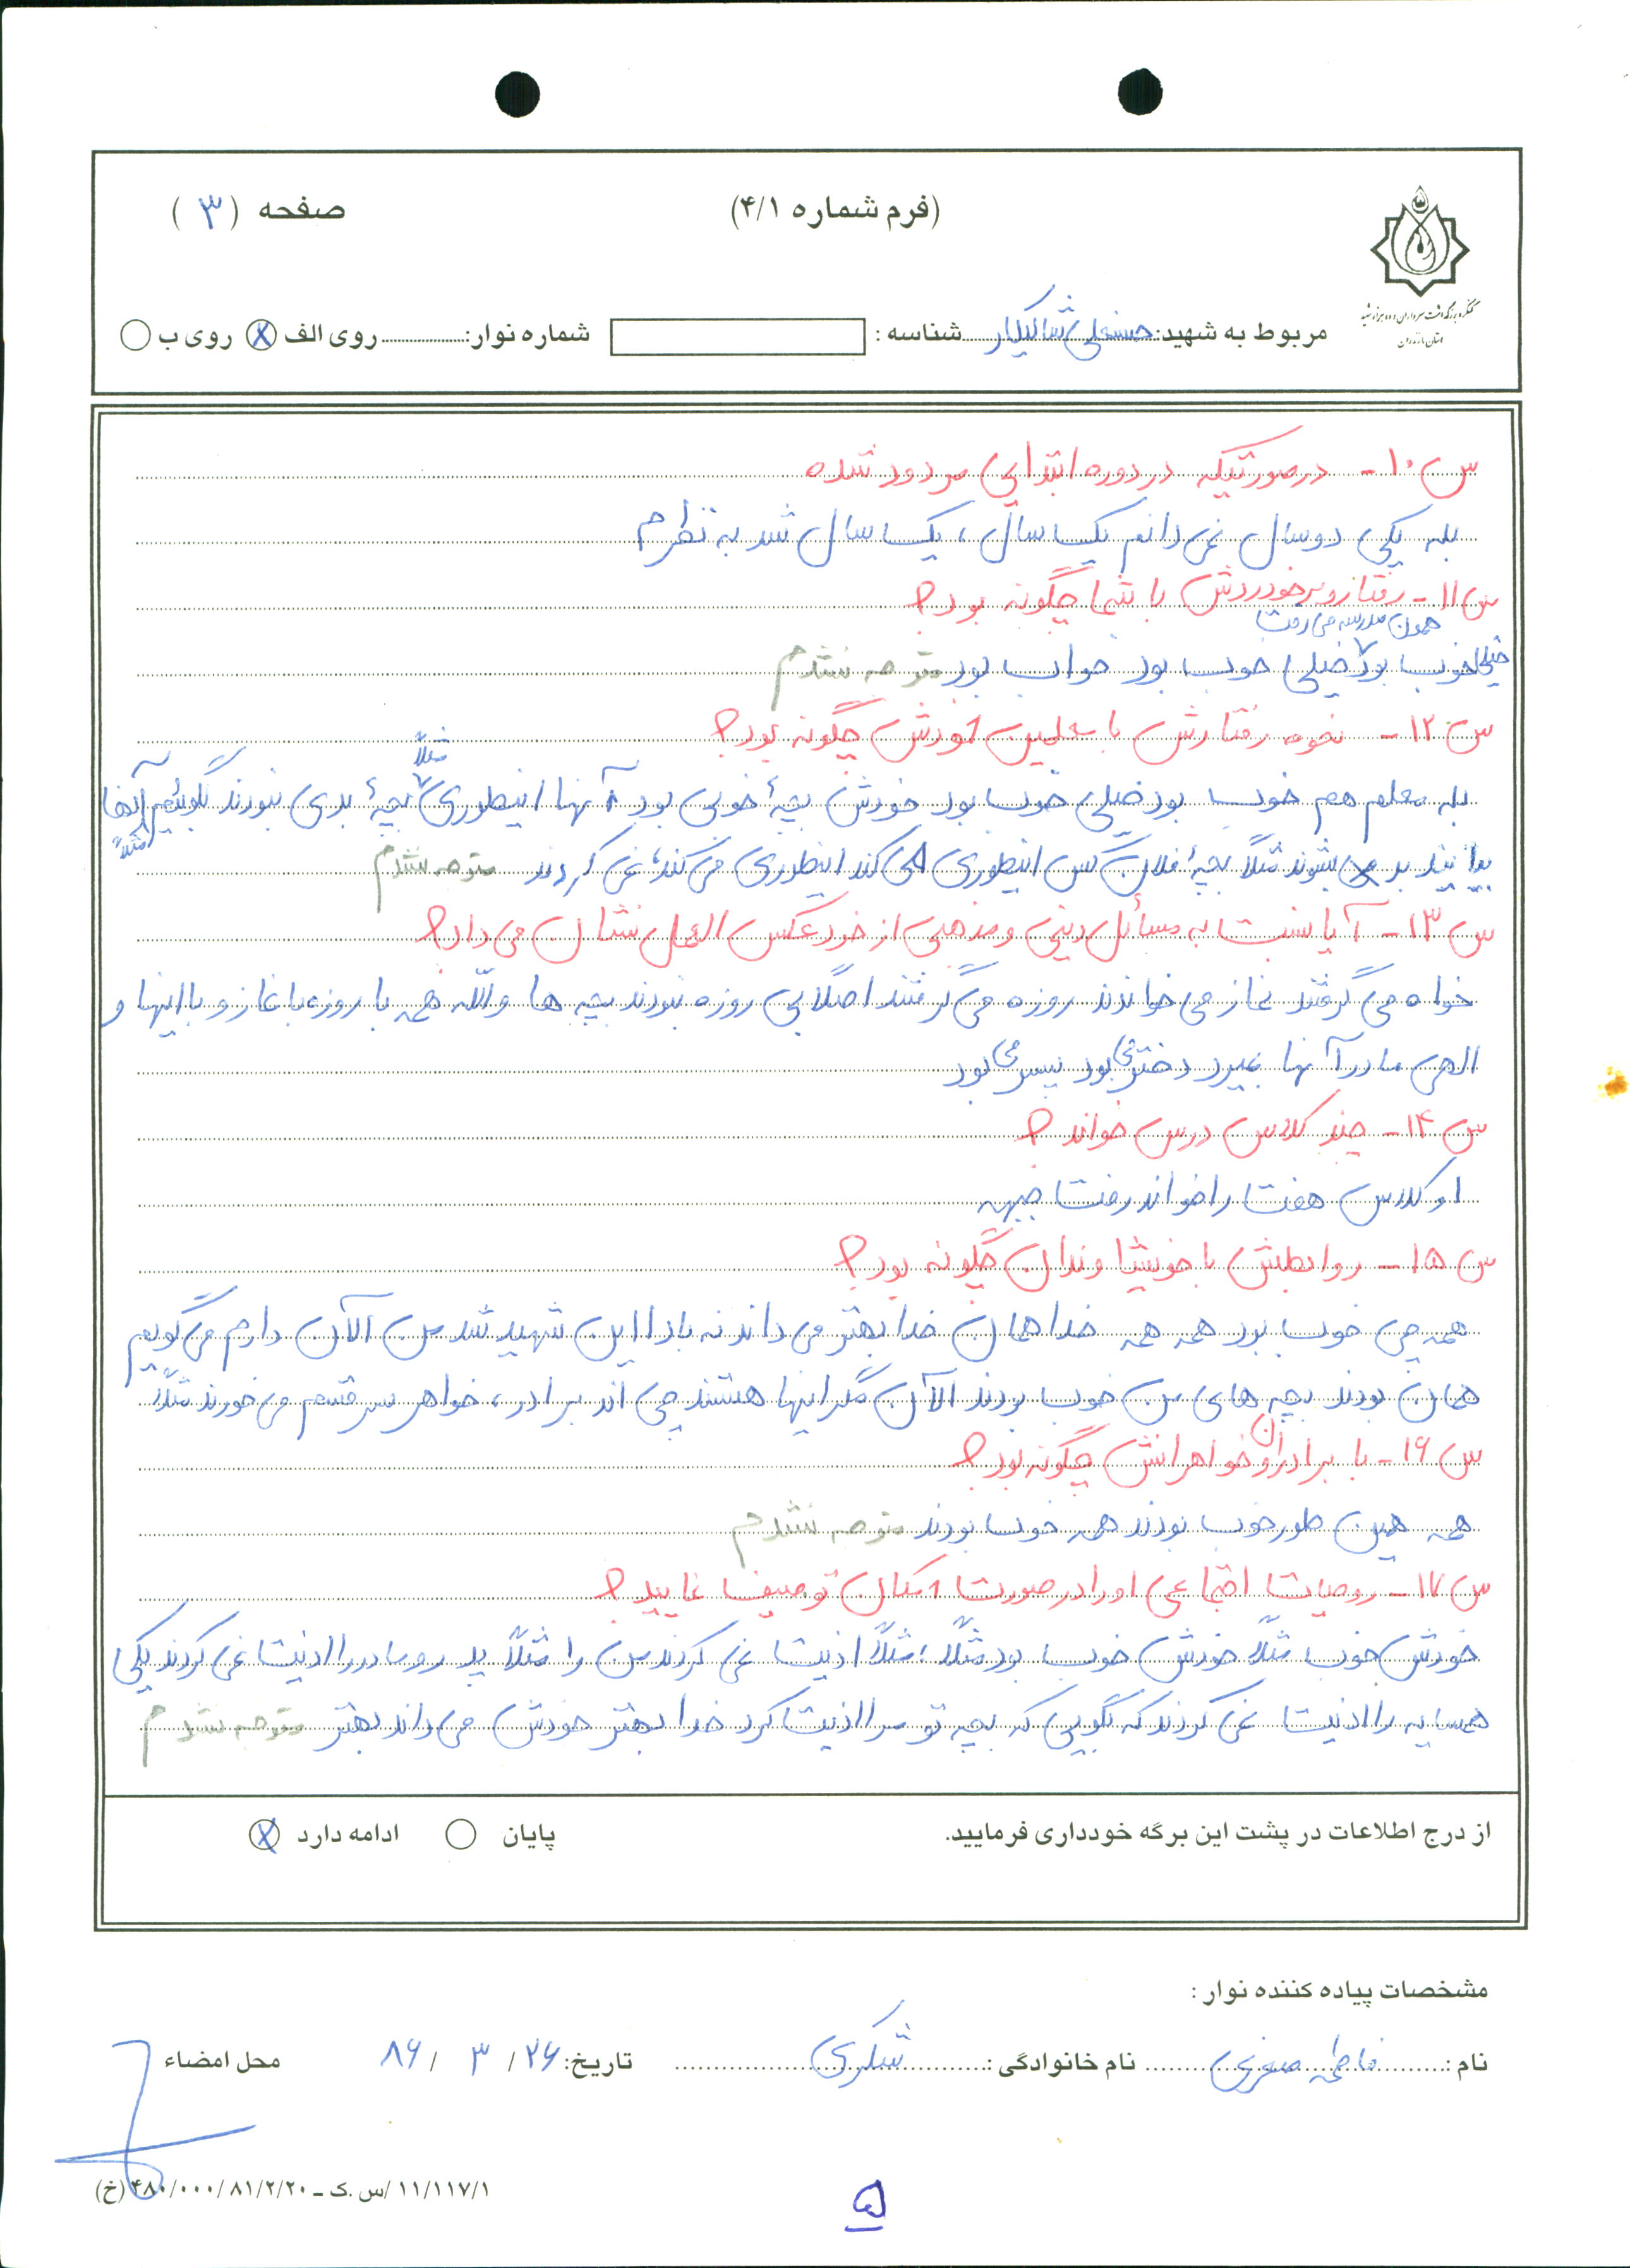 صفحه (۳)
(فرم شماره ۴/۱)
کنگره بزرگداشت سرداران و ده هزار شهید
استان مازندران
مربوط به شهید: حسنعلی شالیکار شناسه : شماره نوار: روی الف روی ب
س ۱۰- درصورتیکه در دوره ابتدایی مردود شده
بله یکی دوسال نمی دانم یک سال ، یک سال شد به نظرم
س ۱۱- رفتار و برخوردش با شما چگونه بود؟
همون مدرسه می رفت
خیلی خوب بود خیلی خوب بود خواب بود متوجه نشدم
س ۱۲- نحوه رفتارش با معلمین خودش چگونه بود؟
مثلاً
بله معلم هم خوب بود خیلی خوب بود خودش بچۀ خوبی بود آنها اینطوری بچۀ بدی نبودند بگوییم آنها
مثلاً
بیایند بد بشوند مثلاً بچۀ فلان کس اینطوری می کند اینطوری می کند، نمی کردند متوجه نشدم
س ۱۳- آیا نسبت به مسائل دینی و مذهبی از خود عکس العمل نشان می داد؟
خواه می گرفتند نماز می خواندند روزه می گرفتند اصلا بی روزه نبودند بچه ها والله همه با روزه با نماز و با اینها و
الهی مادر آنها بمیرد دختر می بود پسر می بود
س ۱۴- چند کلاس درس خواند؟
او کلاس هفت را خواند رفت جبهه
س ۱۵- روابطش با خویشاوندان چگونه بود؟
همه چی خوب بود همه همه خدا همان خدا بهتر می داند نه بادا این شهید شد من الآن دارم می گویم
همان بودند بچه های من خوب بودند الآن مگر اینها هستند چی اند برادر، خواهر سر قسم می خورند مثلاً
س ۱۶- با برادران و خواهرانش چگونه بود؟
همه همین طور خوب بودند همه خوب بودند متوجه نشدم
س ۱۷- روحیات اجتماعی او را در صورت امکان توصیف نمایید؟
خودش خوب مثلاً خودش خوب بود مثلاً، مثلاً اذیت نمی کردند من را مثلاً پدر و مادر را اذیت نمی کردند یکی
همسایه را اذیت نمی کردند که بگویی که بچه تو مرا اذیت کرد خدا بهتر خودش می داند بهتر متوجه نشدم
از درج اطلاعات در پشت این برگه خودداری فرمایید. پایان ادامه دارد
مشخصات پیاده کننده نوار :
نام : فاطمه صغری نام خانوادگی : شکری تاریخ: ۲۶ / ۳ / ۸۶ محل امضاء
۱۱/۱۱۷/۱ /س.ک - ۴۸۰/۰۰۰/۸۱/۲/۲۰ (خ)
۵